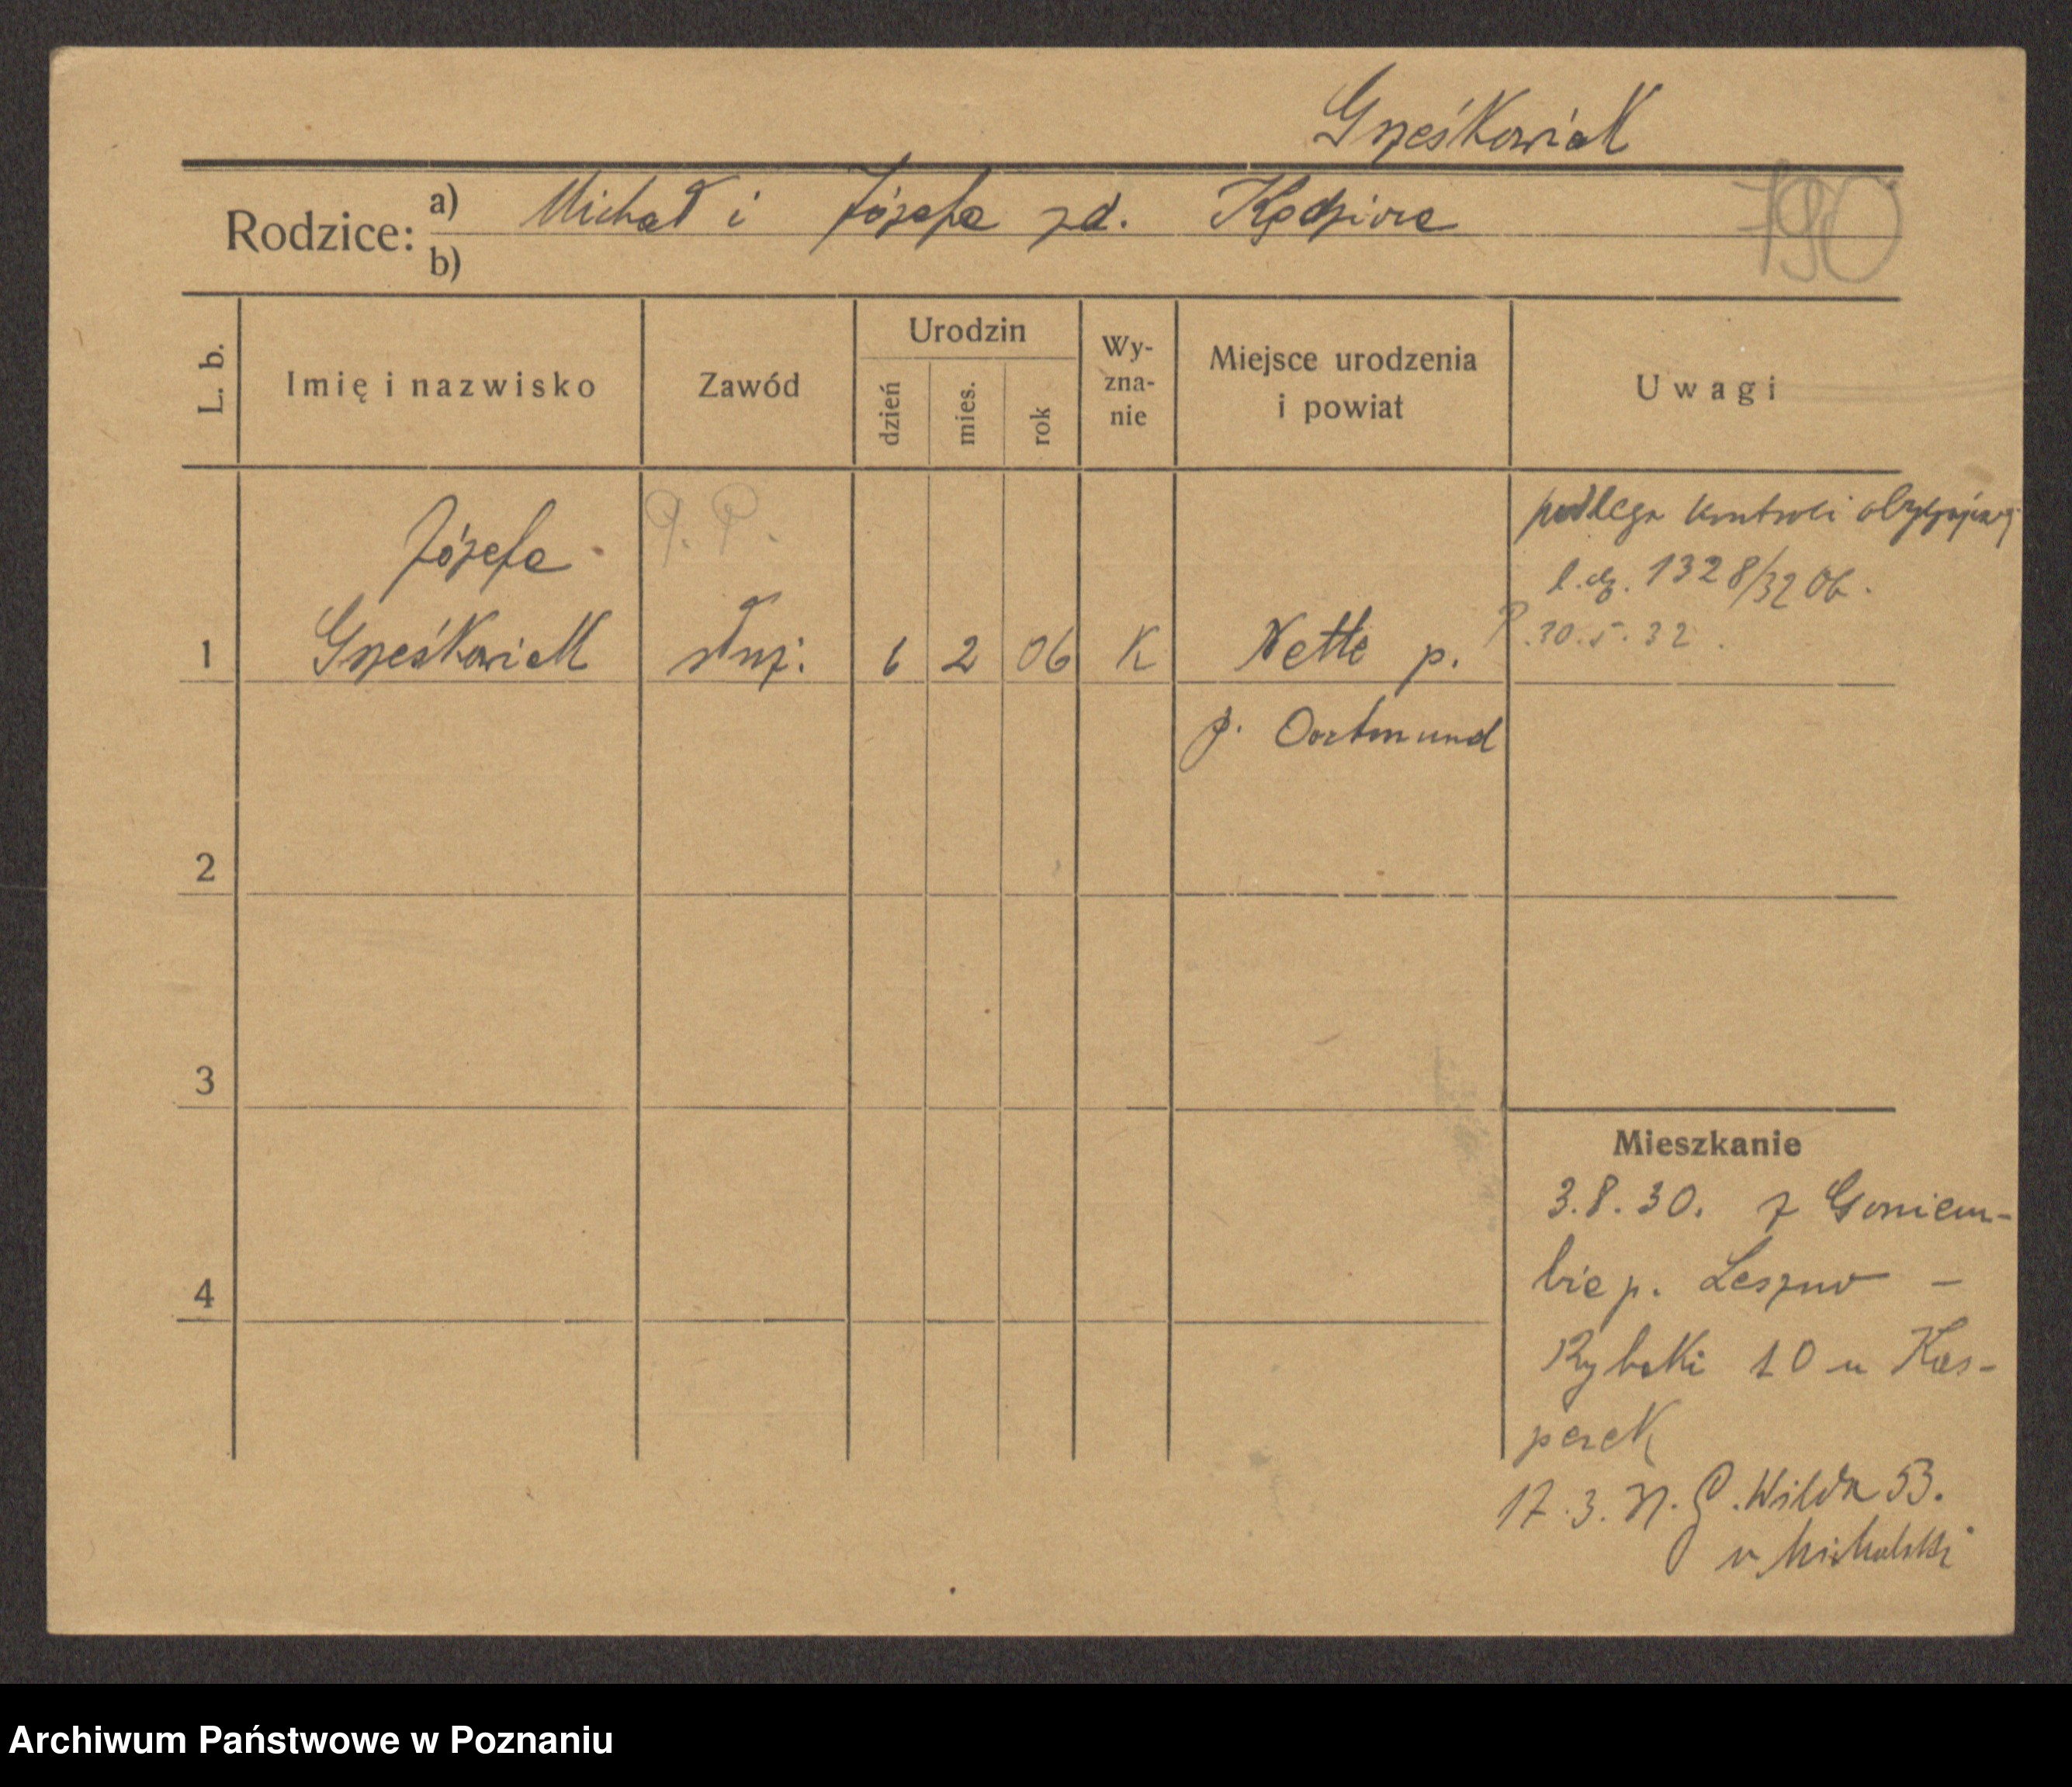 Grześkowiak
Rodzice: a) Michał i Józefa zd. Kędziora
b)
790
L. b.
Imię i nazwisko
Zawód
Urodzin
dzień
mies.
rok
Wy-
zna-
nie
Miejsce urodzenia
i powiat
Uwagi
Józefa
podlega kontroli
l. dz. 1328/32 Ob.
30.5.32.
1 Grześkowiak służ. 6 2 06 K Nette p.
p. Dortmund
2
3
4
Mieszkanie
3.8.30. z Goniem-
bic p. Leszno -
Rybaki 10 u Kas-
perek
17.3. Wilda 53.
u Michalski
Archiwum Państwowe w Poznaniu